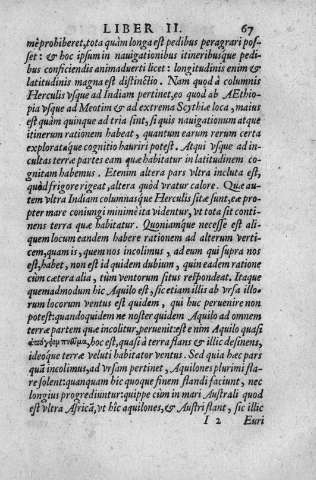 LIBER II. 67
mè prohiberet, tota quàm longa est pedibus peragrari pos-
set: & hoc ipsum in nauigationibus itineribusque pedi-
bus conficiendis animaduerti licet: longitudinis enim &
latitudinis magna est distinctio. Nam quod à columnis
Herculis vsque ad Indiam pertinet, eo quod ab AEthio-
pia vsque ad Meotim & ad extrema Scythiæ loca, maius
est quàm quinque ad tria sint, si quis nauigationum atque
itinerum rationem habeat, quantum earum rerum certa
exploratáque cognitio hauriri potest. Atqui vsque ad in-
cultas terræ partes eam quæ habitatur in latitudinem co-
gnitam habemus. Etenim altera pars vltra inculta est,
quòd frigore rigeat, altera quòd vratur calore. Quæ au-
tem vltra Indiam columnasque Herculis sitæ sunt, eæ pro-
pter mare coniungi minimè ita videntur, vt tota sit conti-
nens terra quæ habitatur. Quoniamque necesse est ali-
quem locum eandem habere rationem ad alterum verti-
cem, quam is, quem nos incolimus, ad eum qui supra nos
est, habet, non est id quidem dubium, quin eadem ratione
cùm cætera alia, tùm ventorum situs respondeat. Itaque
quemadmodum hîc Aquilo est, sic etiam illis ab vrsa illo-
rum locorum ventus est quidem, qui huc peruenire non
potest: quandoquidem ne noster quidem Aquilo ad omnem
terræ partem quæ incolitur, peruenit: est enim Aquilo quasi
hoc est, quasi à terra flans & illic desinens,
ideóque terræ veluti habitator ventus. Sed quia hæc pars
quã incolimus, ad vrsam pertinet, Aquilones plurimi fla-
re solent: quanquam hic quoque finem flandi faciunt, nec
longius progrediuntur: quippe cùm in mari Australi quod
est vltra Africã, vt hîc aquilones, & Austri flant, sic illic
I 2 Euri